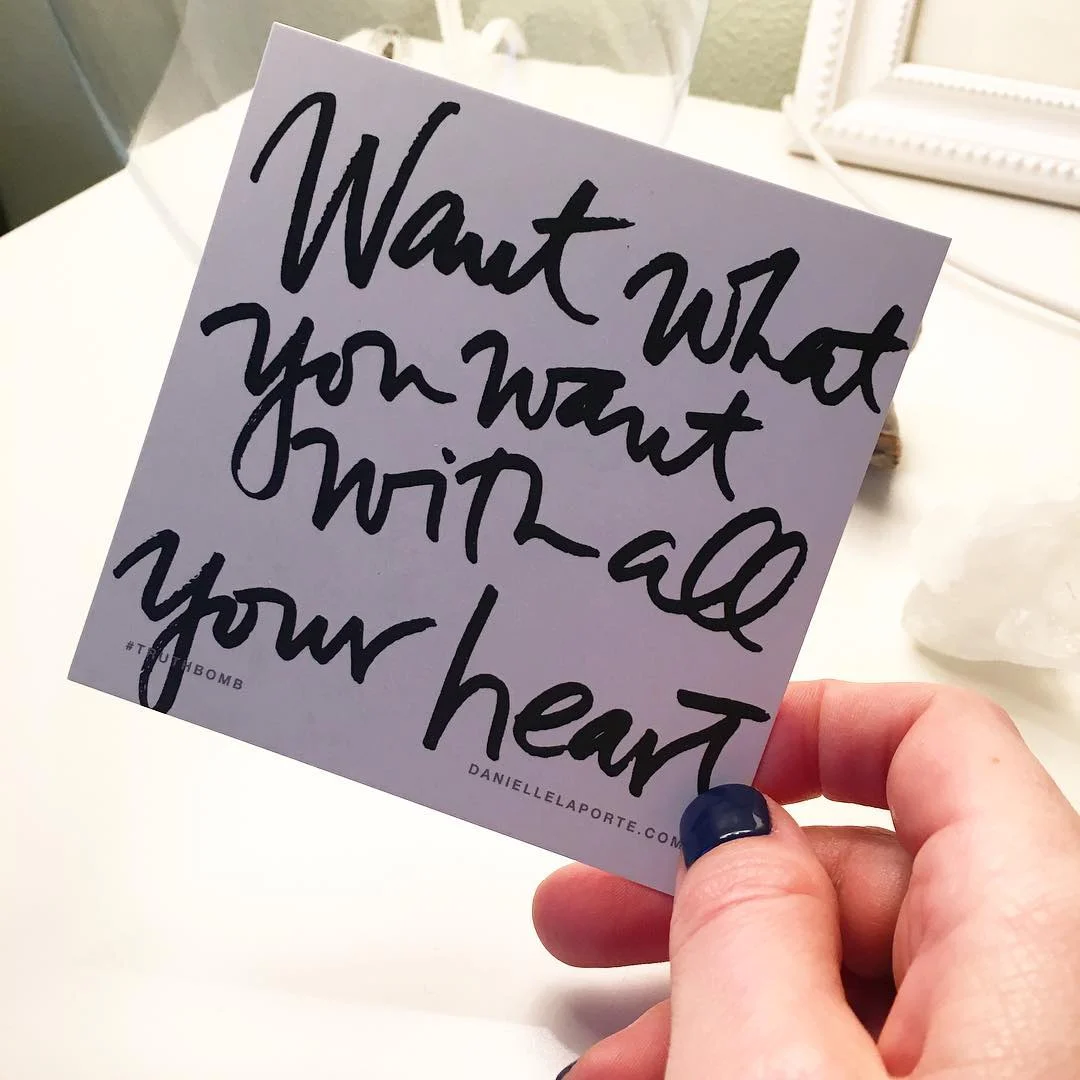 Want what
you want
with all
your heart
#TRUTHBOMB
DANIELLELAPORTE.COM